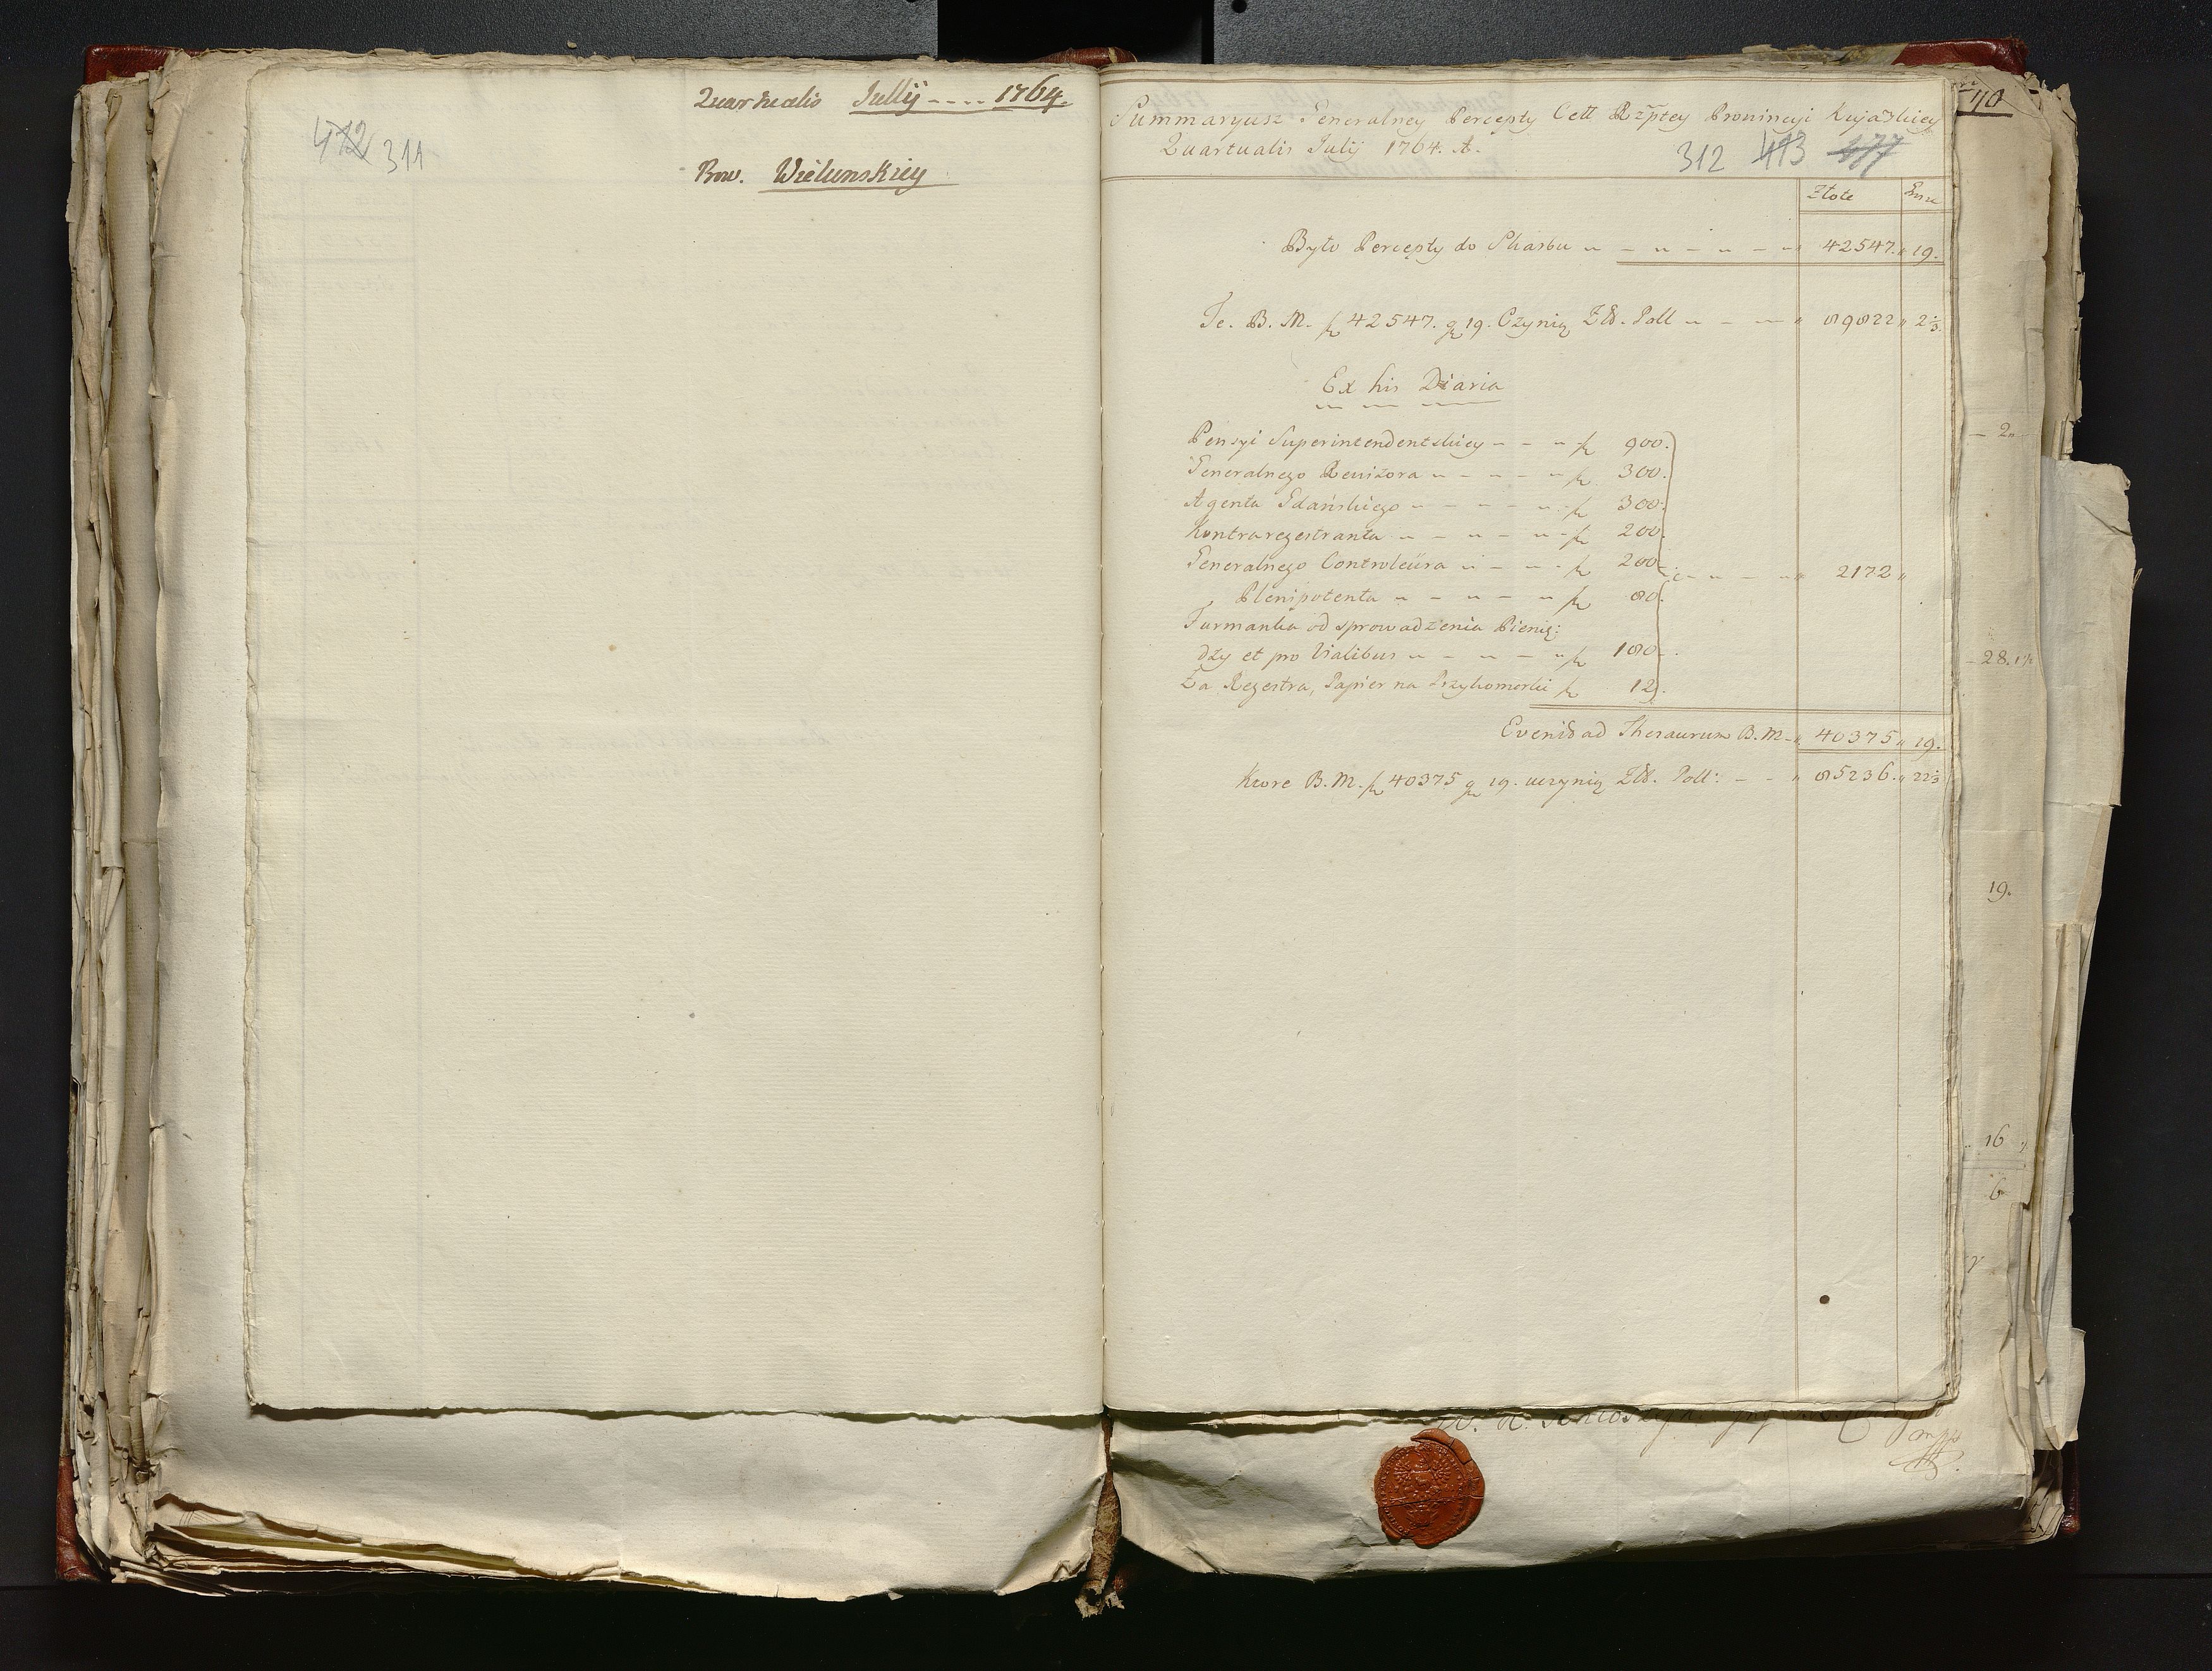 Quartualis Jullij ---- 1764.
412 311
Prow. Wielunskiey
Summaryusz Generalney Percepty Cell Rzptey Prowincyi Kujaskiey
Quartualis Julij 1764. A.
312 413 477
Złote
Było Percepty do Skarbu 42547. 19.
Te. B. M. fl 42547. gr 19. Czynią Zło. Poll 89822 2 2/3
Ex his Diaria
Pensyi Superintendentskiey fl 900.
Generalnego Rewizora fl 300.
Agenta Gdańskiego fl 300.
Kontraregestranta fl 200.
Generalnego Controlleüra fl 200 2172
Plenipotenta fl 80.
Furmanka od sprowadzenia Pienię:
dzy et pro Vialibus fl 180.
Za Regestra, Papier na Przykomorki fl 12.
Evenid ad Thesaurum B. M. 40375 19.
Ktore B. M. fl 40375 gr 19. uczynią Zło. Poll: 85236. 22 1/3
110
2
28.
19.
16
6
mpp